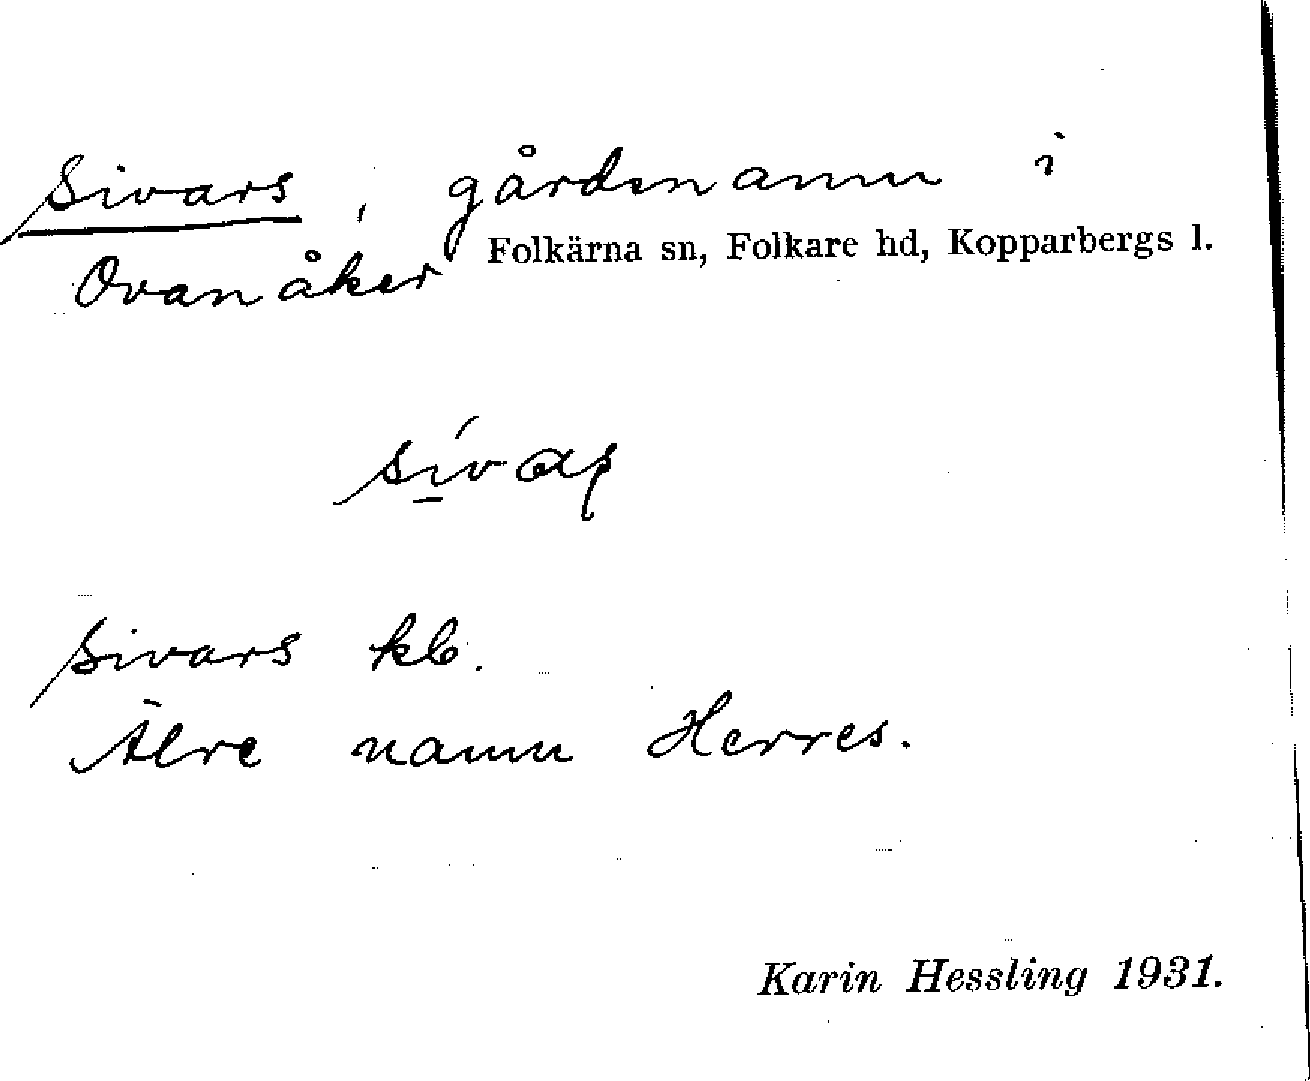 Sivars, gårdsnamn i
Folkärna sn, Folkare hd, Kopparbergs l.
Ovanåker
Sivars kb.
Älvre namn Herres.
Karin Hessling 1931.